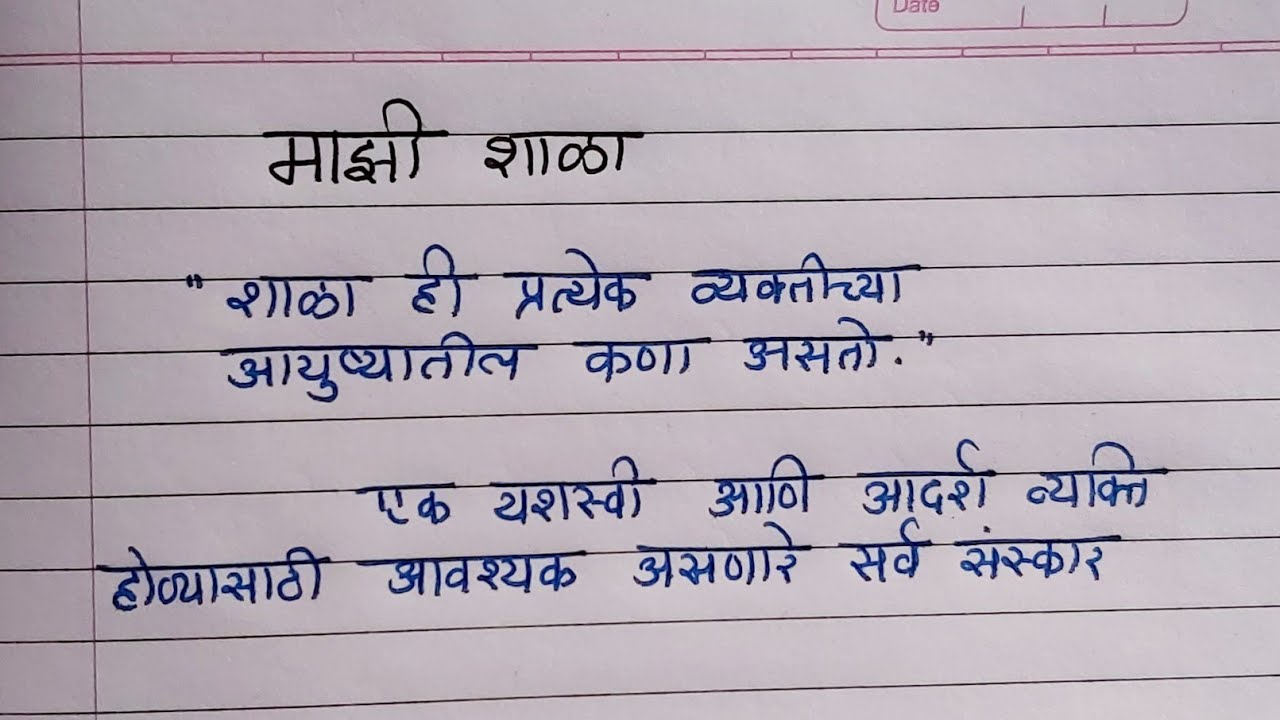 Date
माझी शाळा
"शाळा ही प्रत्येक व्यक्तीच्या
आयुष्यातील कणा असतो."
एक यशस्वी आणि आदर्श व्यक्ति
होण्यासाठी आवश्यक असणारे सर्व संस्कार